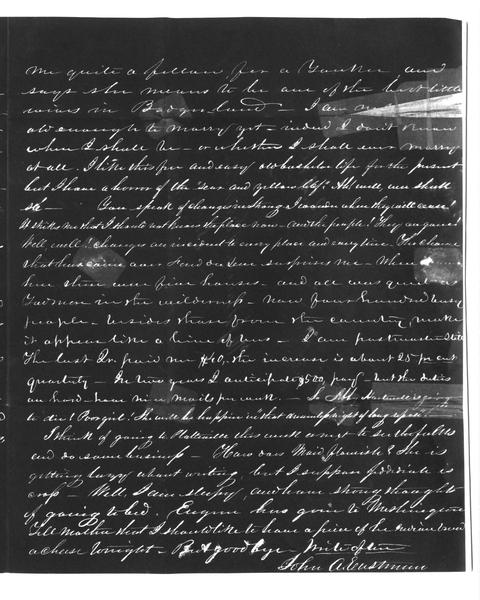 me quite a fellow, for a Yankee and
says she means to be one of the best little
wives in Badgerland - I am not
old enough to marry yet - indeed I don't know
when I shall be - or whether I shall ever marry
at all. I like this free and easy old bachelor life for the present
but I have a horror of the sear and yellow leaf! Ah well, we shall
see - You speak of changes in I wonder when they will cease!
It strikes me that I should not know the place now - And the people! They are gone!
Well well! changes are incident to every place and every time. The change
that has come over Fond du Lac surprises me - When I
here there were five houses - and all was quiet
in the wilderness - now four hundred busy
people - besides those from the country, make
it appear like a hive of bees - I am postmaster still
The last Qr. paid me $40, the increase is about 25 pr cent
quarterly - In two years I anticipate $500, pay - but the duties
are hard - have nine mails per week - So is going
to die! Poor girl! She will be happier in that
I think of going to Platteville this week or next to see the folks
and do some business - How does flourish? She is
getting lazy about writing, but I suppose is
cross - Well, I am sleepy, and have strong thoughts
of going to bed. Eugene has gone to
Tell mother that I should like to have a piece of the Indian bread
tonight - But good bye - Write often
John A. Eastman